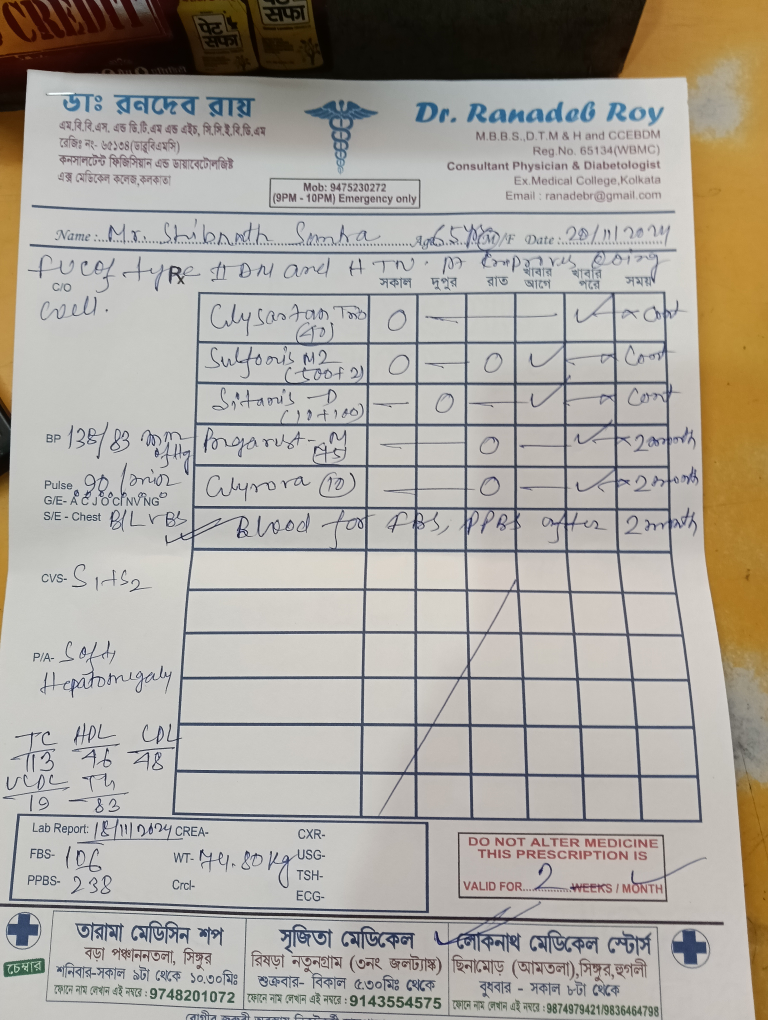 CREDIT
পেট সফা
পেট সফা
ডাঃ রনদেব রায়
এম.বি.বি.এস. এন্ড ডি.টি.এম এন্ড এইচ, সি.সি.ই.বি.ডি.এম
রেজিঃ নং- ৬৫১৩৪(ডাব্লুবিএমসি)
কনসালটেন্ট ফিজিসিয়ান এন্ড ডায়াবেটোলজিষ্ট
এক্স মেডিকেল কলেজ,কলকাতা
Mob: 9475230272
(9PM - 10PM) Emergency only
Dr. Ranadeb Roy
M.B.B.S.,D.T.M & H and CCEBDM
Reg.No. 65134(WBMC)
Consultant Physician & Diabetologist
Ex.Medical College,Kolkata
Email : ranadebr@gmail.com
Name : Mr. Shibnath Santra Age 65 M/F Date : 20/11/2024
FUC of type II DM and HTN. pt improves doing
well.
C/O
Rx সকাল দুপুর রাত খাবার আগে খাবার পরে সময়
Glysartan Trio (40) O — — ✓ × Cont
Sulfonis M2 (500+2) O — O ✓ — Cont
Sitanis - D (10+100) — O — ✓ — Cont
BP 138/83 mm of Hg
M — O — ✓ × 2 month
Pulse 90/min
(10) — O — ✓ × 2 month
G/E- A C J O CI NV NG
S/E - Chest B/L VBS
Blood for FBS, PPBS after 2 month
CVS- S1+S2
P/A- Soft,
Hepatomegaly
TC HDL LDL
113 46 48
VLDL TG
19 83
Lab Report: 18/11/2024 CREA- CXR-
FBS- 106 WT- 74.80 kg USG-
TSH-
PPBS- 238 Crcl- ECG-
DO NOT ALTER MEDICINE
THIS PRESCRIPTION IS
VALID FOR 2 WEEKS / MONTH
চেম্বার
তারামা মেডিসিন শপ
বড়া পঞ্চাননতলা, সিঙ্গুর
শনিবার-সকাল ৯টা থেকে ১০.৩০মিঃ
ফোনে নাম লেখান এই নম্বরে : 9748201072
সৃজিতা মেডিকেল
রিষড়া নতুনগ্রাম (৩নং জলট্যাঙ্ক)
শুক্রবার- বিকাল ৫.৩০মিঃ থেকে
ফোনে নাম লেখান এই নম্বরে : 9143554575
লোকনাথ মেডিকেল স্টোর্স
ছিনামোড় (আমতলা),সিঙ্গুর,হুগলী
বুধবার - সকাল ৮টা থেকে
ফোনে নাম লেখান এই নম্বরে : 9874979421/9836464798